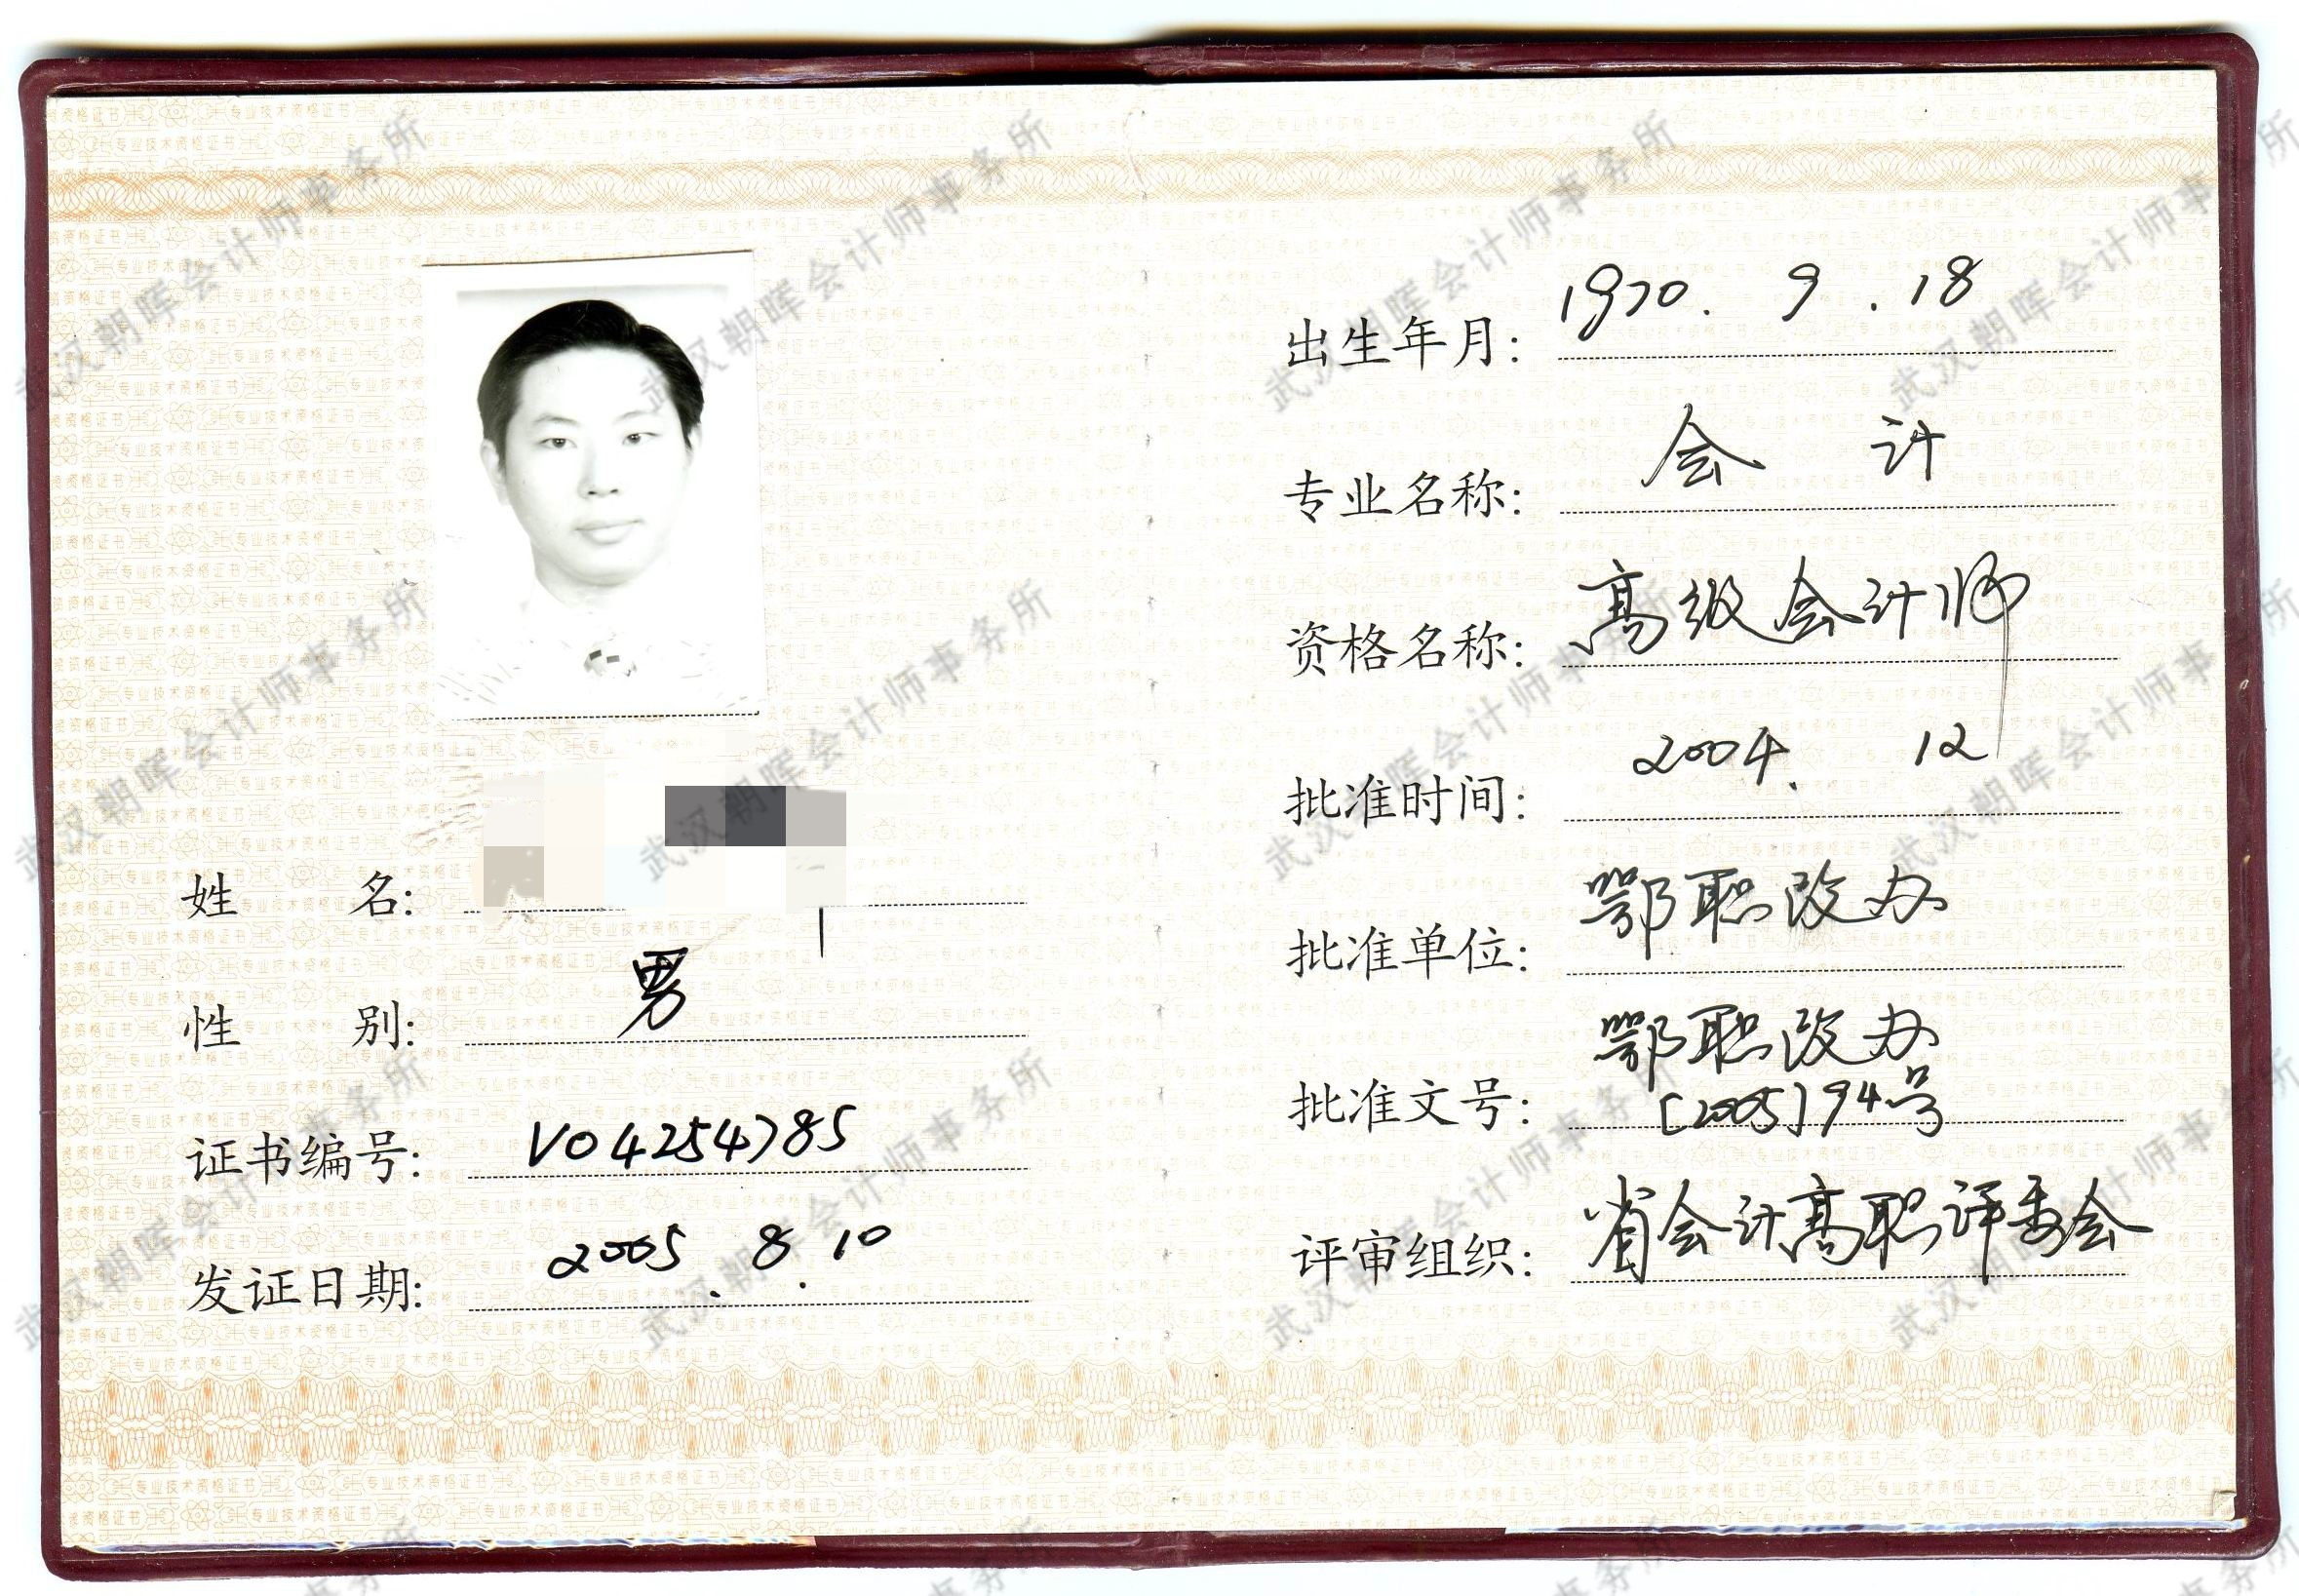 姓 名:
性 别: 男
证书编号: V04254785
发证日期: 2005. 8. 10
出生年月: 1970. 9. 18
专业名称: 会 计
资格名称: 高级会计师
批准时间: 2004. 12
批准单位: 鄂职改办
批准文号: 鄂职改办
[2005]94号
评审组织: 省会计高职评委会
武汉朝晖会计师事务所
专业技术资格证书